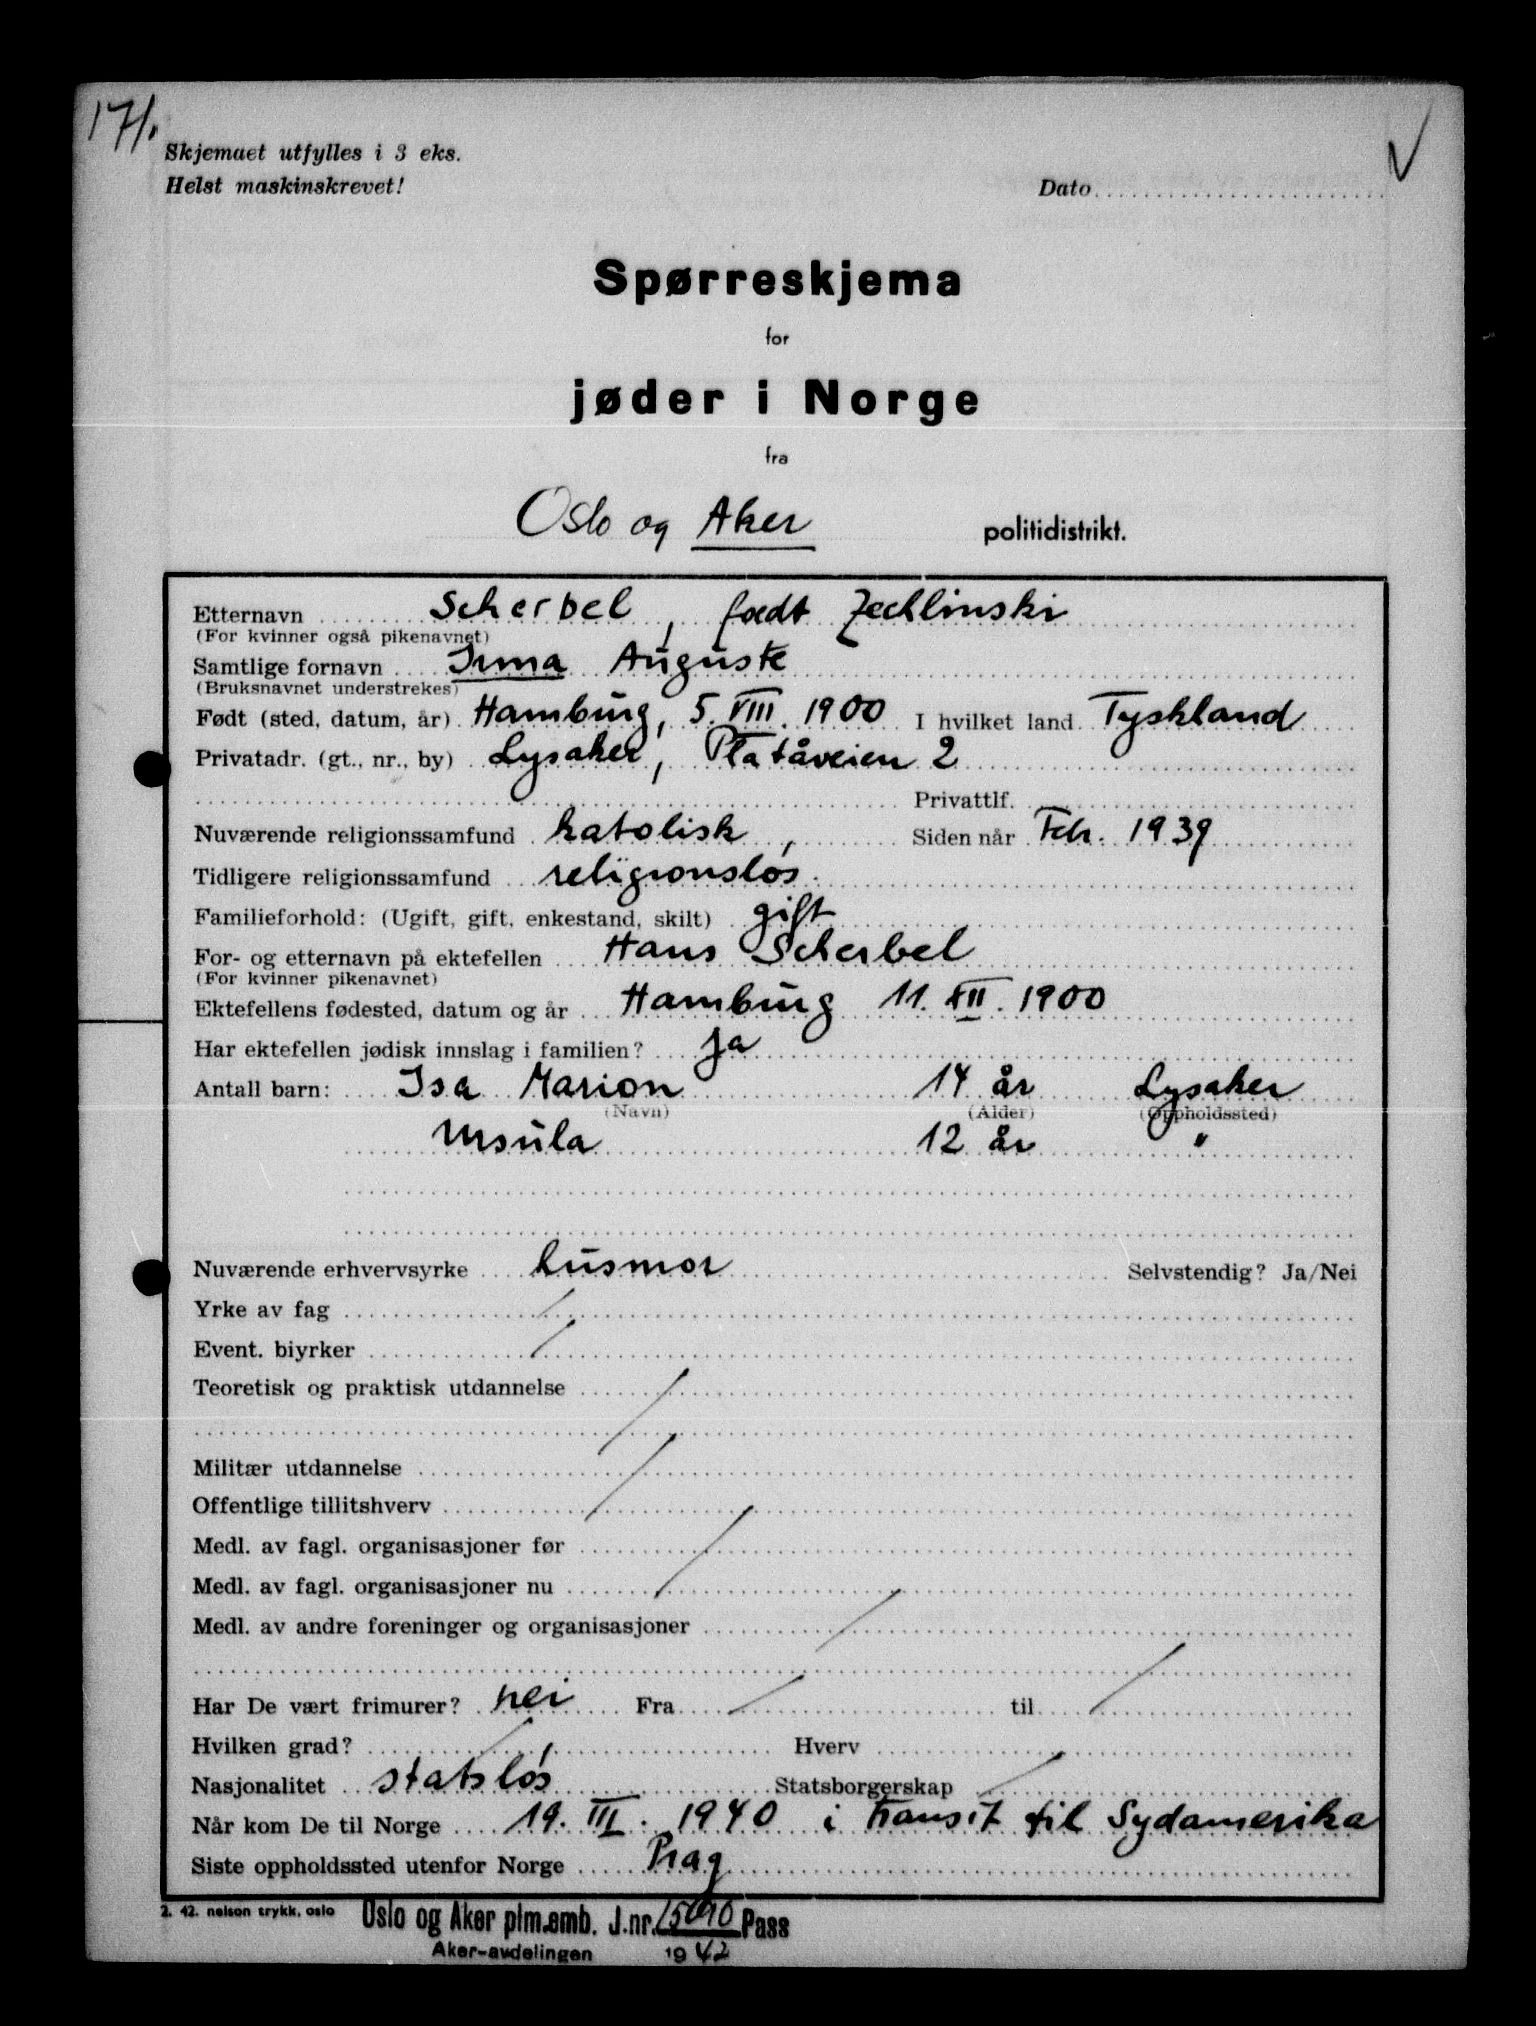 17/.
Skjemaet utfylles i 3 eks.
Helst maskinskrevet!
Dato
Spørreskjema
for
jøder i Norge
fra
Oslo og Aker politidistrikt.
Etternavn Scherbel, födt Zechlinski
(For kvinner også pikenavnet)
Samtlige fornavn Irma Auguste
(Bruksnavnet understrekes)
Født (sted, datum, år) Hamburg, 5. VIII. 1900 I hvilket land Tyskland
Privatadr. (gt., nr., by) Lysaker, Platåveien 2
Privattlf.
Nuværende religionssamfund katolisk, Siden når Febr. 1939
Tidligere religionssamfund religionslös.
Familieforhold: (Ugift, gift, enkestand, skilt) gift
For- og etternavn på ektefellen Hans Scherbel
(For kvinner pikenavnet)
Ektefellens fødested, datum og år Hamburg 11. XII. 1900
Har ektefellen jødisk innslag i familien? Ja
Antall barn: Isa Marion 14 år Lysaker
(Navn) (Alder) (Oppholdssted)
Ursula 12 år "
Nuværende erhvervsyrke husmor Selvstendig? Ja/Nei
Yrke av fag /
Event. biyrker /
Teoretisk og praktisk utdannelse /
Militær utdannelse /
Offentlige tillitshverv
Medl. av fagl. organisasjoner før /
Medl. av fagl. organisasjoner nu
Medl. av andre foreninger og organisasjoner /
Har De vært frimurer? nei Fra / til /
Hvilken grad? / Hverv
Nasjonalitet statslös Statsborgerskap /
Når kom De til Norge 19. III. 1940 i transit til Sydamerika
Siste oppholdssted utenfor Norge Prag
2. 42. nelson trykk, oslo
Oslo og Aker plm.emb. J.nr. Pass
Aker-avdelingen 1942